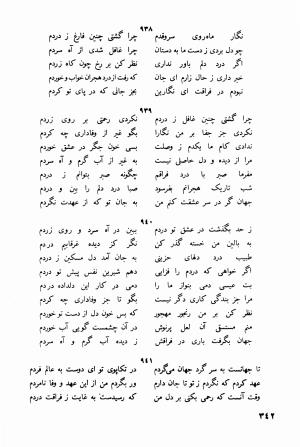 ۹۳۸
نگار ماه‌روی سروقدم چرا گشتی چنین فارغ ز دردم
چو دل بردی ز دست ما به دستان چرا غافل شدی از آه سردم
اگر درد دلم باور نداری نظر کن بر رخ چون کاه زردم
خبر داری ز حال زارم ای جان که رفت از درد هجران خواب و خوردم
نبودم در فراقت ای نگارین بجز جانی که در پای تو کردم
۹۳۹
چرا گشتی چنین غافل ز دردم نکردی رحمتی بر روی زردم
نکردی جز جفا بر من نگارا بگو غیر از وفاداری چه کردم
ندادی کام ما یکدم ز وصلت بسی خون جگر در عشق خوردم
مرا از دیده و دل حاصلی نیست به غیر از آب گرم و آه سردم
مفرما صبر با درد فراقم چگونه صبر بتوانم ز دردم
شب تاریک هجرانم بفرسود صبا درد دلم را بین و دردم
جهان گر در سر عشقت کنم من به جان تو که از عهدت نگردم
۹۴۰
ز حد بگذشت در عشق تو دردم ببین در آه سرد و روی زردم
به بالین من خسته گذر کن نگر کز دیده غرقابیم دردم
طبیب درد دلهای حزینی به جان آمد دل مسکین ز دردم
اگر خواهی که دردم را فزایی دهم شیرین نفس پیش تو دردم
بت عیسی دمی بنواز ما را دمی در کار این دلداده دردم
مرا جز بندگی کاری دگر نیست بگو تا جز وفاداری چه کردم
نظر کن بر من رنجور مهجور بس خون دل ز دست تو خوردم
منم مستسقی آن لعل پرنوش در آن چشمست گویی آب خوردم
جهان بگرفت باری در فراقش ز دیده آب گرم و آه سردم
۹۴۱
تا جهانست به سر گرد جهان می‌گردم در تکاپوی تو ای دوست به عالم فردم
عهد کردم که نگردم ز تو تا جان دارم ور بگردم من از این عهد و وفا نامردم
وقت آنست که رحمی بکنی بر دل من که رسیدست به غایت ز فراقت دردم
۳۴۲